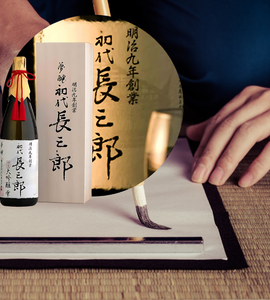 明治九年創業
初代
長三郎
明治九年創業
夢醸
初代
長三郎
初代
長三郎
大吟醸